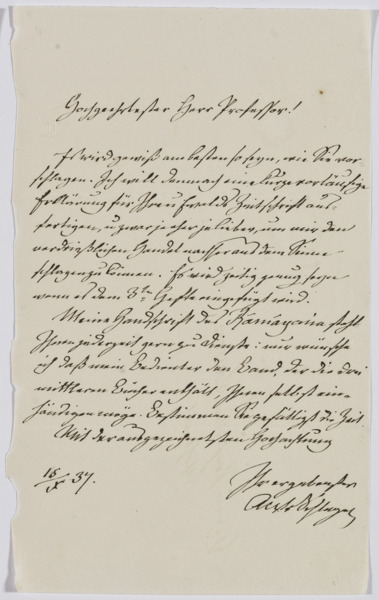 Hochgeehrtester Herr Professor!
Es wird gewiß am besten so seyn, wie Sie vor-
schlagen. Ich will demnach eine kurze vorläufige
Erklärung für Ihre u Ewalds Zeitschrift aus
fertigen, u zwar je eher je lieber, um mir den
verdrießlichen Handel nachher aus dem Sinne
schlagen zu können. Es wird zeitig genug seyn
wenn es dem 3ten Hefte angefügt wird.
Meine Handschrift des Ramayana steht
Ihnen jederzeit gern zu Dienste: nur wünsche
ich daß mein Bedienter den Band, der die drei
mittleren Bücher enthält, Ihnen selbst ein-
händigen möge. Bestimmen Sie gefälligst die Zeit.
Mit der ausgezeichnetsten Hochachtung
Ihr ergebenster
AWvSchlegel
18/X 37.